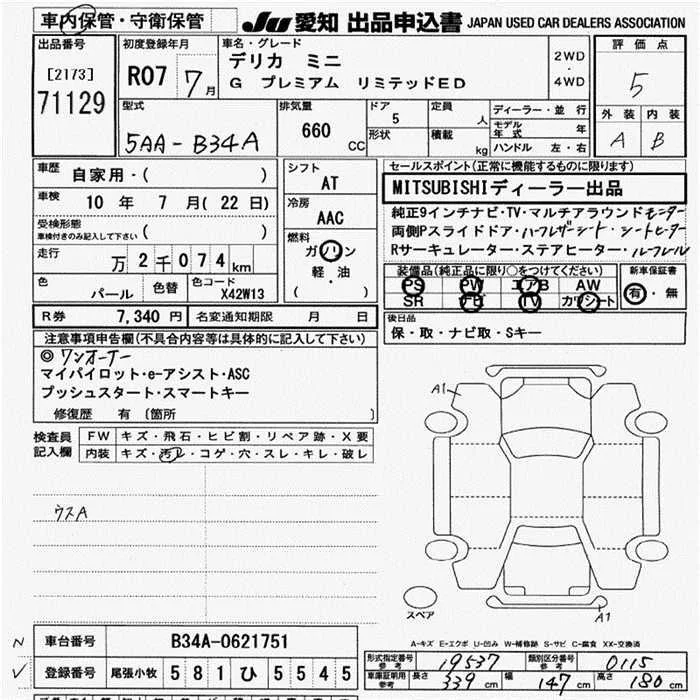 車内保管・守衛保管 JU 愛知 出品申込書 JAPAN USED CAR DEALERS ASSOCIATION
出品番号 初度登録年月 車名・グレード 評価点
[2173] R07 7月 デリカ ミニ 2WD・4WD 5
71129 G プレミアム リミテッドED
型式 排気量 ドア 定員 ディーラー・並行 外装 内装
5AA-B34A 660 CC 5 人 モデル年式 年 A B
形状 積載 kg ハンドル 左・右
車歴 自家用・( ) シフト AT セールスポイント(正常に機能するものに限ります)
車検 10 年 7 月( 22 日) 冷房 AAC MITSUBISHIディーラー出品
受検形態 車検付きのみ記入して下さい ( ) 燃料 ガソリン 軽・油 ( )
純正9インチナビ・TV・マルチアラウンドモニター
両側Pスライドドア・ハーフレザーシート・シートヒーター
Rサーキュレーター・ステアヒーター・ルーフレール
走行 万 2千074 km
装備品(純正品に限り○をつけてください) 新車保証書
色 パール 色替 色コード X42W13
PS PW エアB AW 有・無
SR ナビ TV カワシート
R券 7,340 円 名変通知期限 月 日
後日品
保・取・ナビ取・Sキー
注意事項申告欄(不具合内容等は具体的に記入して下さい)
◎ ワンオーナー
マイパイロット・e-アシスト・ASC
プッシュスタート・スマートキー
修復歴 有 (箇所 )
検査員記入欄 FW キズ・飛石・ヒビ割・リペア跡・X要
内装 キズ・汚レ・コゲ・穴・スレ・キレ・破レ
ウスA
A1
スペア
A1
A-キズ E-エクボ U-凹み W-補修跡 S-サビ C-腐食 XX-交換済
N 車台番号 B34A-0621751
✓ 登録番号 尾張小牧 581 ひ 5545
形式指定番号 参考 19537 類別区分番号 参考 0115
車庫証明用 参考 長さ 339 cm 幅 147 cm 高さ 180 cm